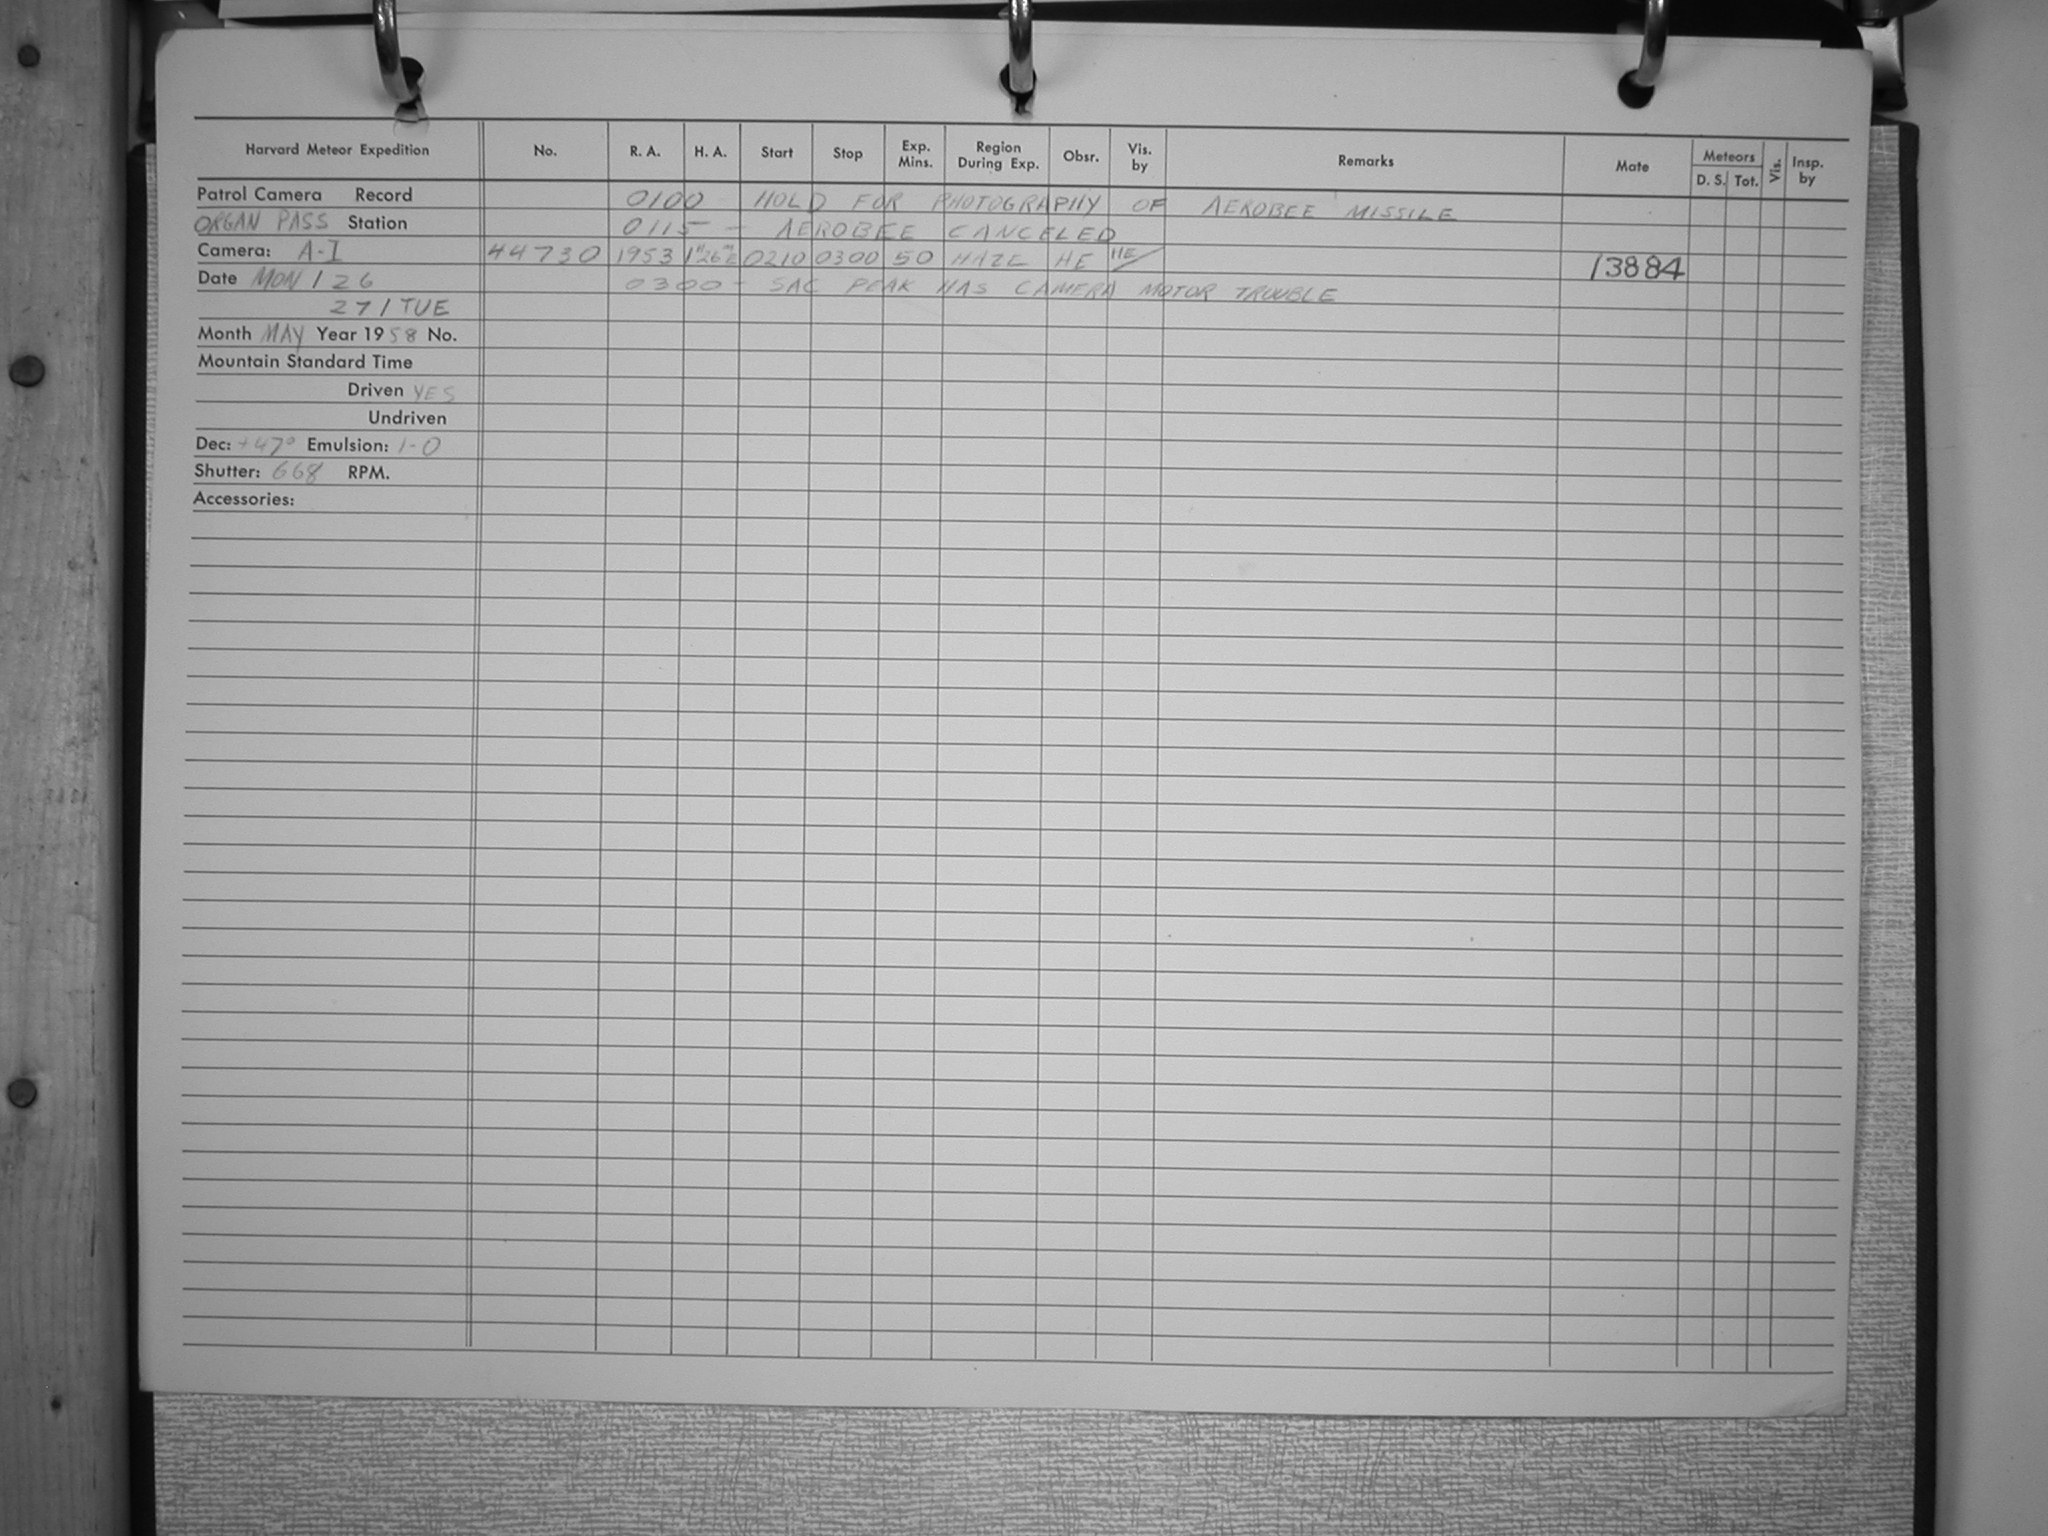 Harvard Meteor Expedition No. R. A. H. A. Start Stop Exp. Mins. Region During Exp. Obsr. Vis. by Remarks Mate Meteors D. S. Tot. Vis. Insp. by
Patrol Camera Record 0100 HOLD FOR PHOTOGRAPHY OF AEROBEE MISSILE
ORGAN PASS Station 0115 — AEROBEE CANCELED
Camera: A-I 44730 1953 1H26ME 0210 0300 50 HAZE HE HE/ 13884
Date MON / 26 0300 - SAC PEAK HAS CAMERA MOTOR TROUBLE
27 / TUE
Month MAY Year 1958 No.
Mountain Standard Time
Driven YES
Undriven
Dec: +47° Emulsion: I-O
Shutter: 668 RPM.
Accessories: